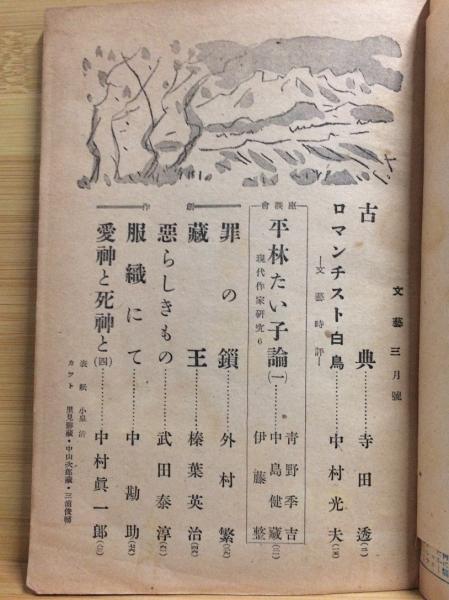 文藝三月號
古典………寺田透
ロマンチスト白鳥……中村光夫
―文藝時評―
座談會
平林たい子論(一)
現代作家研究6
青野季吉
中島健藏
伊藤整
創作
罪の鎖………外村繁
藏王………榛葉英治
惡らしきもの……武田泰淳
服織にて………中勘助
愛神と死神と(四)……中村眞一郎
表紙 小泉清
カット 里見勝藏・中山次郎藏・三浦俊輔